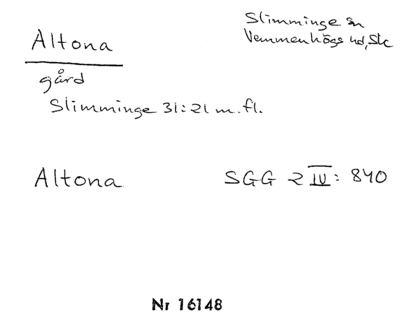 Altona
Slimminge sn
Vemmenhögs hd, Sk
gård
Slimminge 31:21 m.fl.
Altona SGG 2 IV: 840
Nr 16148